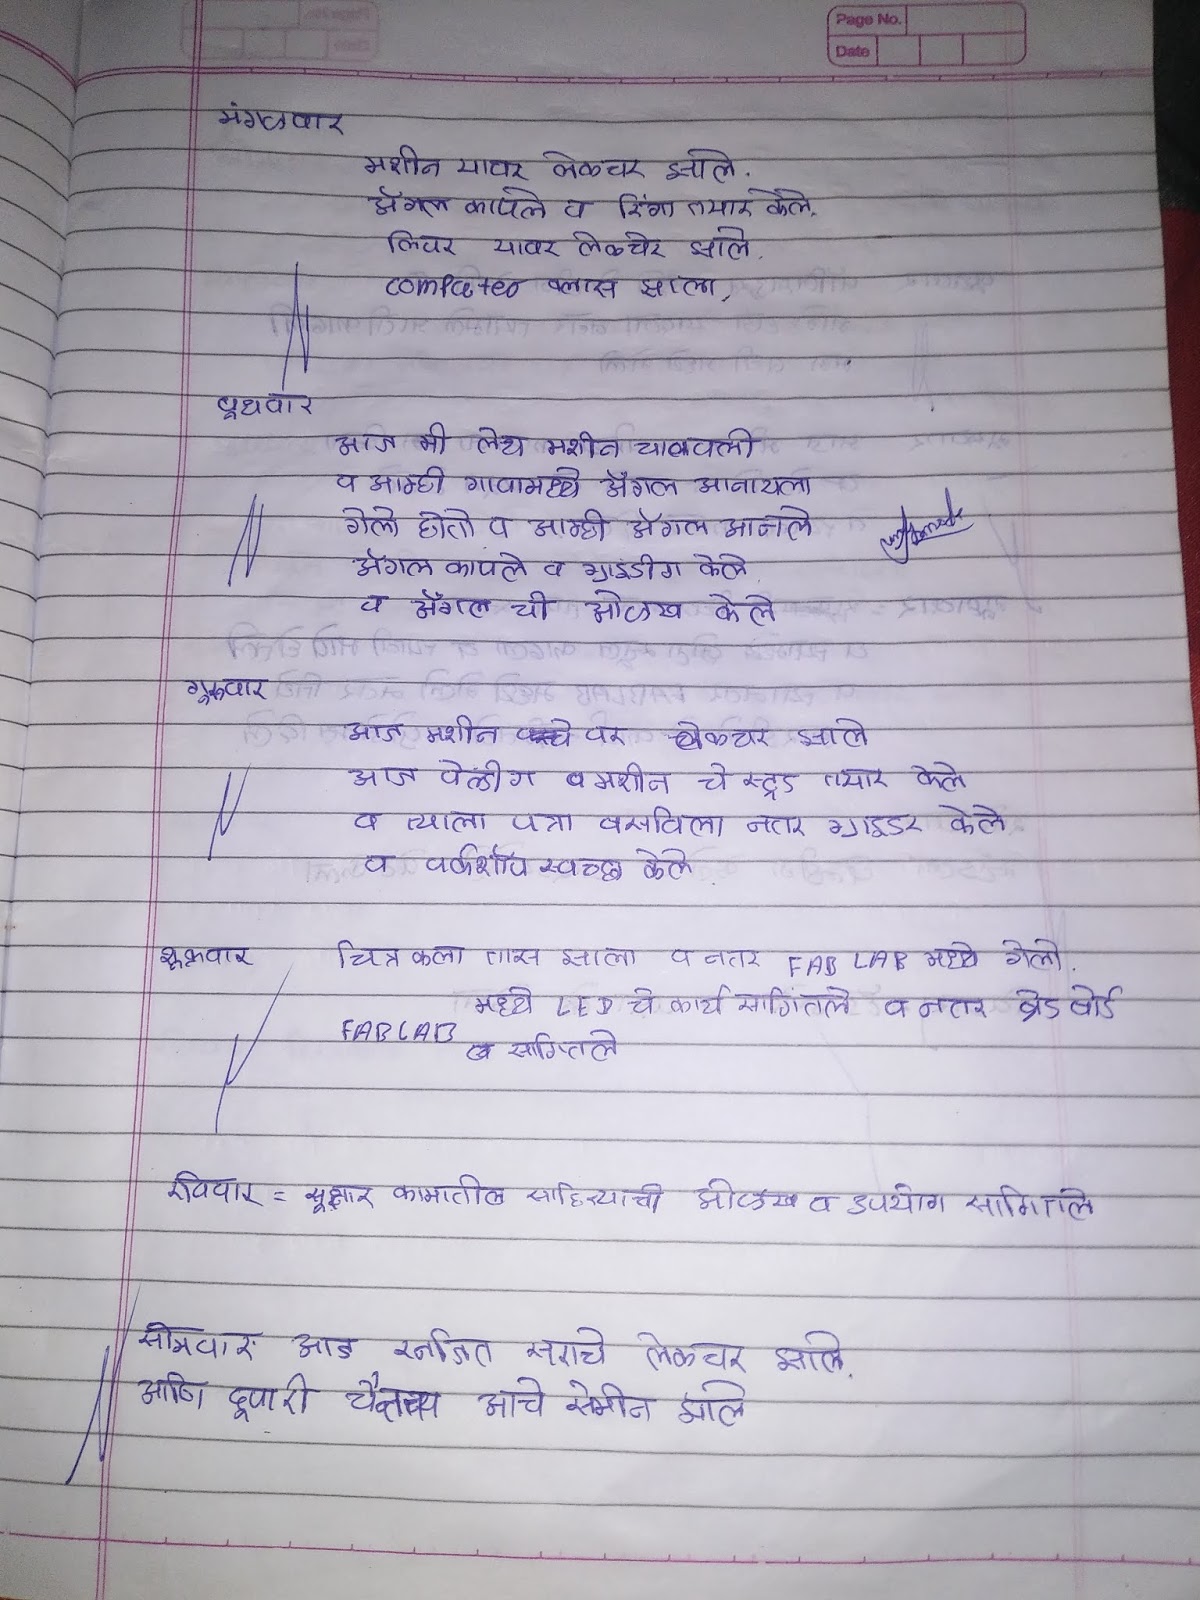 Page No.
Date
मंगळवार
मशीन यावर लेकचर झाले.
अँगल कापले व रिंगा तयार केले.
लिवर यावर लेकचेर झाले.
computer क्लास झाला,
बुधवार
आज मी लेथ मशीन चालवली
व आम्ही गावामध्ये अँगल आनायला
गेलो होतो व आम्ही अँगल आनले
अँगल कापले व ग्राइडीग केले
व अँगल ची ओळख केले
गुरुवार
आज मशीन वर लेकचर झाले
आज वेल्डीग व मशीन चे स्ट्रड तयार केले
व त्याला पत्रा बसविला नतर ग्राइडर केले
व वर्कशॉप स्वच्छ केले.
शुक्रवार चित्रकला तास झाला व नतर FAB LAB मध्ये गेलो.
FAB LAB मध्ये LED चे कार्य सागिंतले व नतर ब्रेड बोर्ड
व सागितले
रविवार = सूक्षार कामातील साहित्याची ओळख व उपयोग सागितले
सोमवार आज रनजित सराचे लेकचर झाले.
आणि दूपारी चैतन्य आचे सेमीन झाले